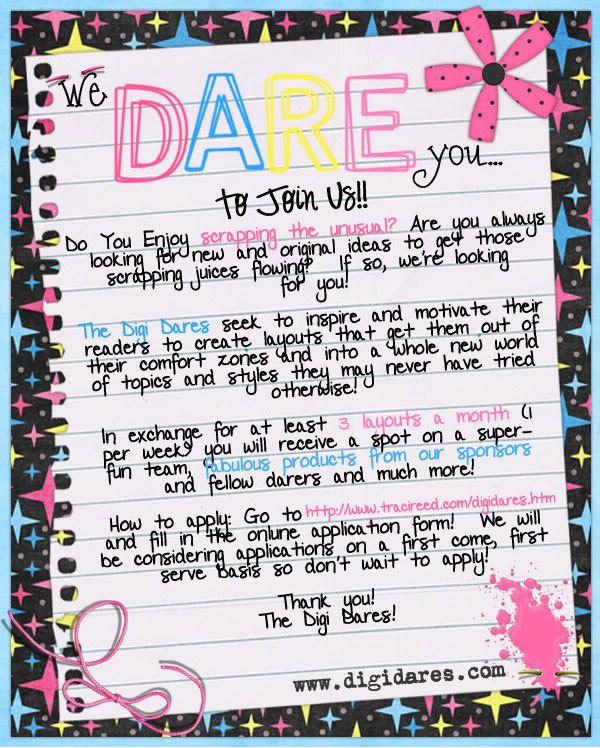 We
DARE
you...
to Join Us!!
Do You Enjoy scrapping the unusual? Are you always
looking for new and original ideas to get those
scrapping juices flowing? If so, we're looking
for you!
The Digi Dares seek to inspire and motivate their
readers to create layouts that get them out of
their comfort zones and into a whole new world
of topics and styles they may never have tried
otherwise!
In exchange for at least 3 layouts a month (1
per week) you will receive a spot on a super-
fun team, fabulous products from our sponsors
and fellow darers and much more!
How to apply: Go to http://www.tracireed.com/digidares.htm
and fill in the online application form! We will
be considering applications on a first come, first
serve basis so don't wait to apply!
Thank you!
The Digi Dares!
www.digidares.com